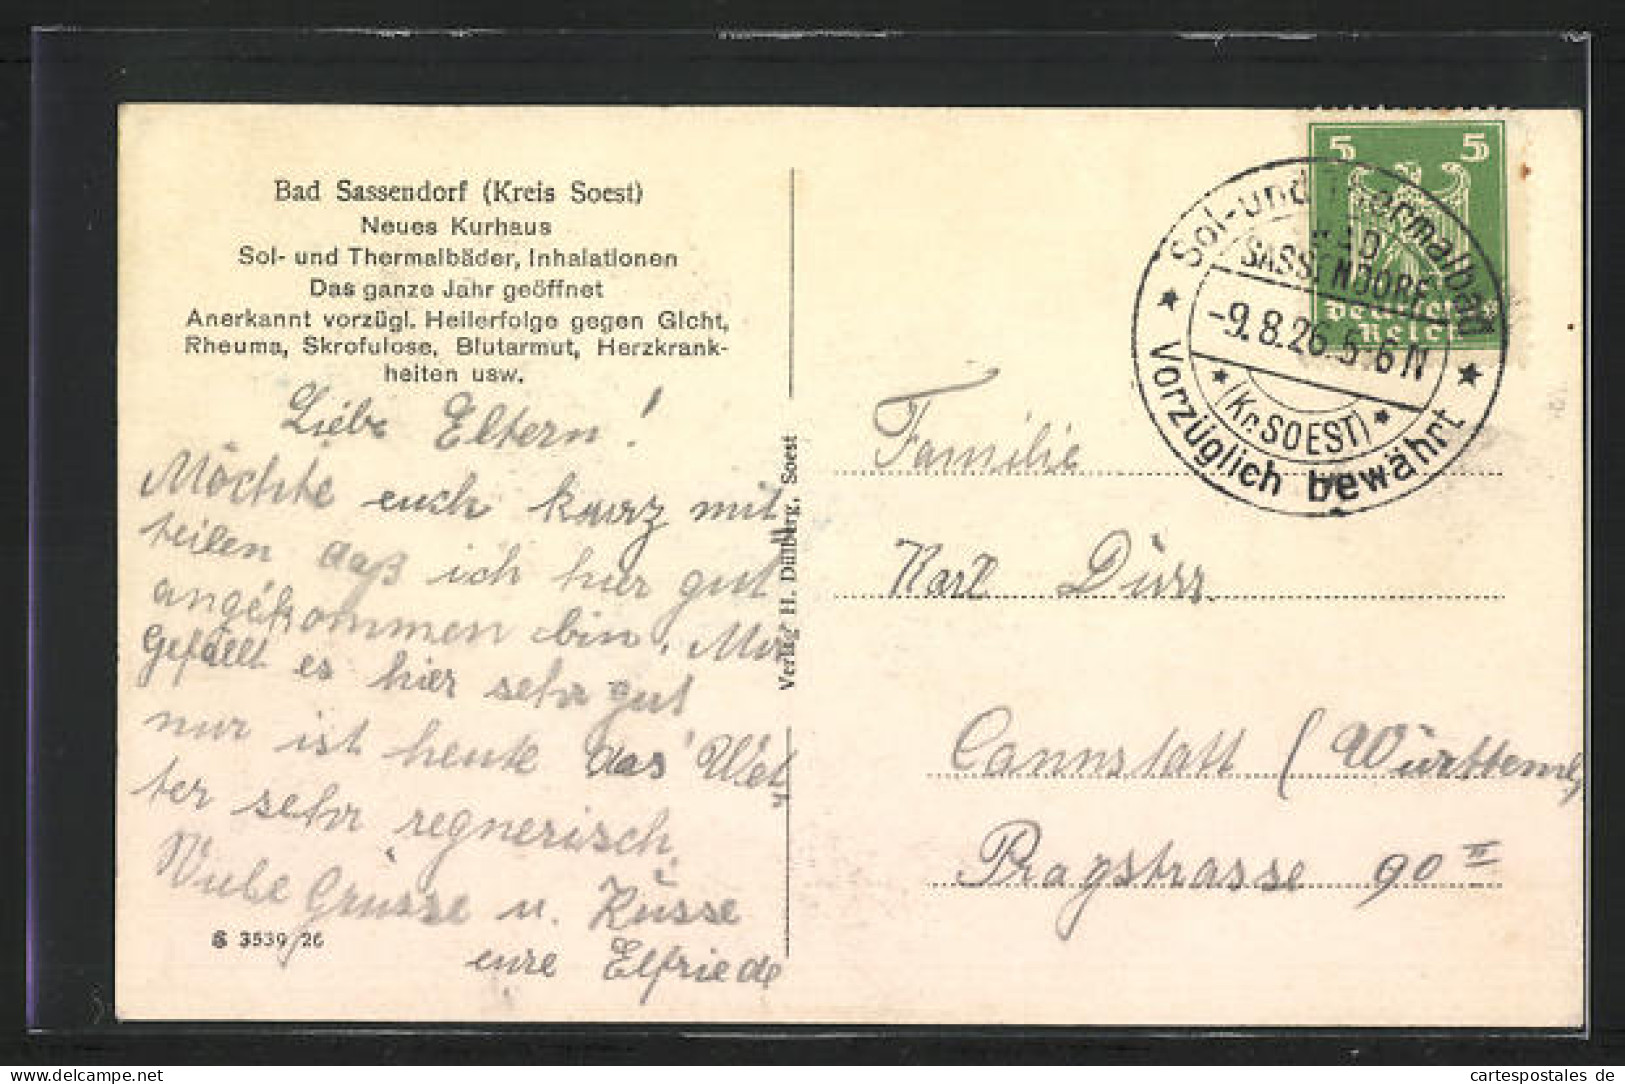 Bad Sassendorf (Kreis Soest)
Neues Kurhaus
Sol- und Thermalbäder, Inhalationen
Das ganze Jahr geöffnet
Anerkannt vorzügl. Heilerfolge gegen Gicht,
Rheuma, Skrofulose, Blutarmut, Herzkrank-
heiten usw.
Liebe Eltern!
Möchte euch kurz mit
teilen daß ich hier gut
angekommen bin. Mir
Gefällt es hier sehr gut
nur ist heute das Wet
ter sehr regnerisch
Viele Grüsse u. Küsse
eure Elfriede
S 3539/26
Verlag H. Dülberg, Soest
5 5
Deutsches
Reich
Sol- und Thermalbad
BAD
SASSENDORF
-9.8.26.5-6N
(Kr. SOEST)
Vorzüglich bewährt
Familie
Karl Dürr
Cannstatt (Württembg
Pragstrasse 90 II
cartespostales de